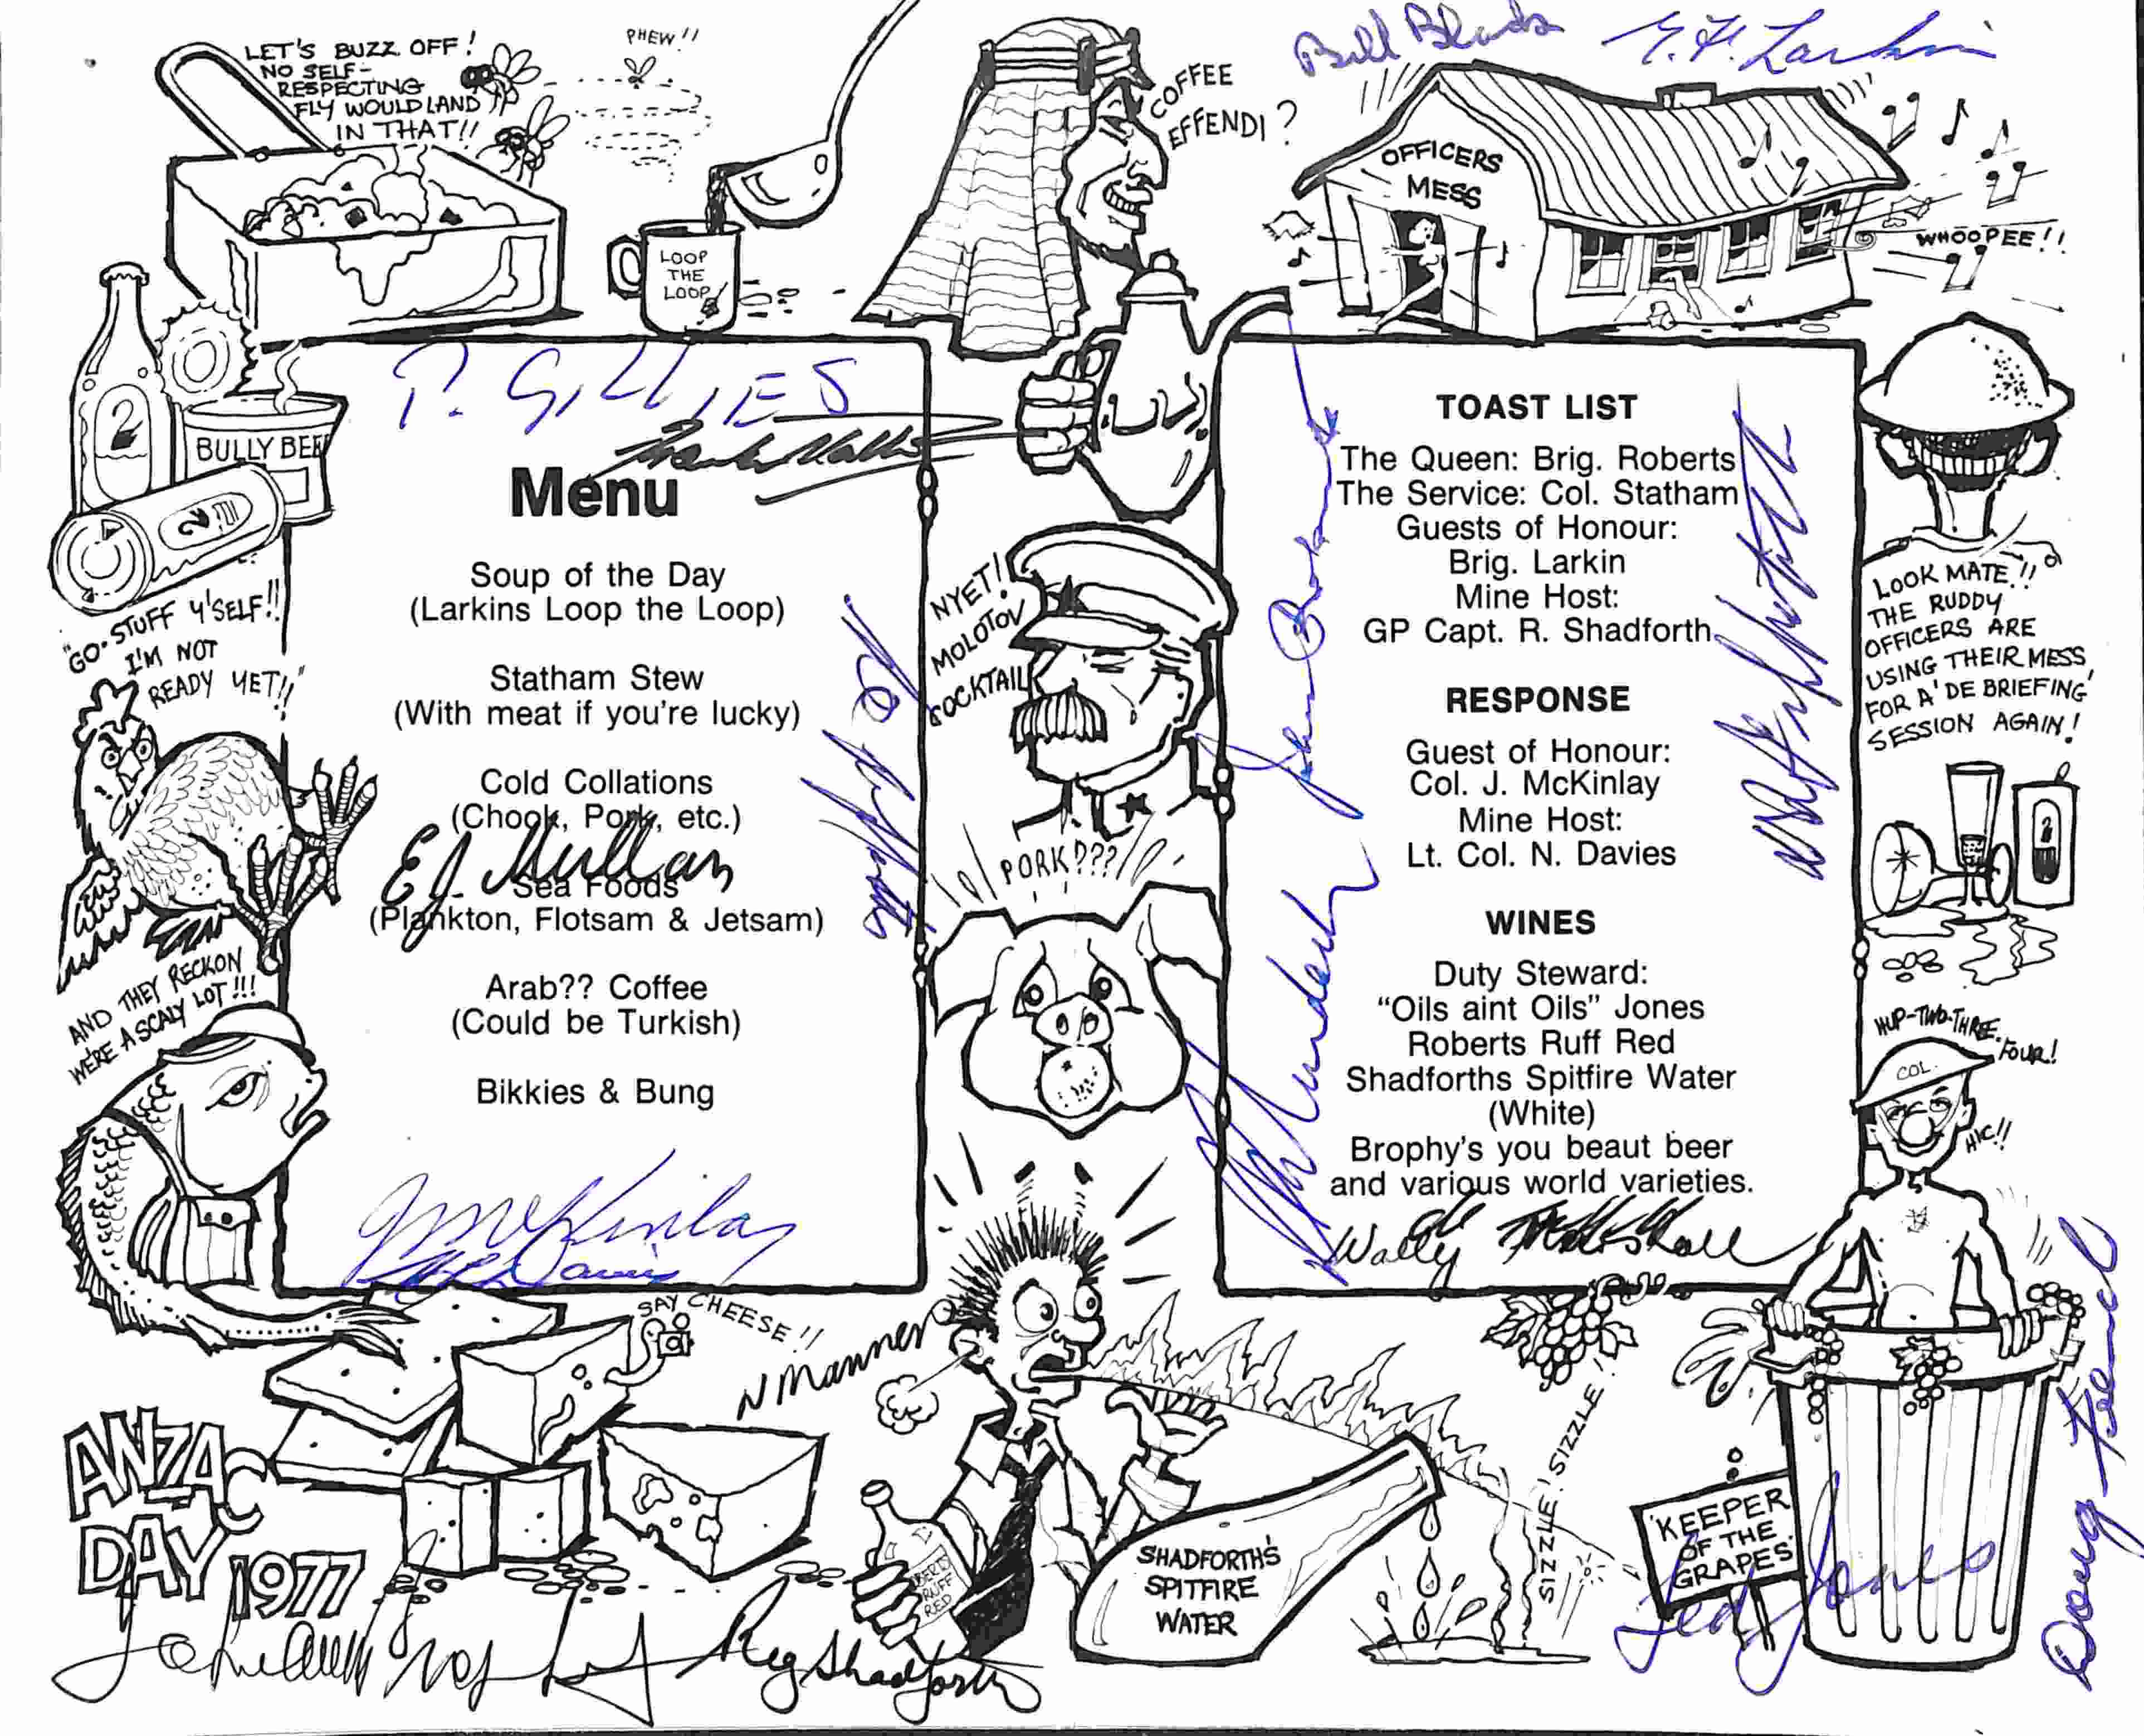 LET'S BUZZ OFF!
NO SELF-
RESPECTING
FLY WOULD LAND
IN THAT!!
PHEW!!
LOOP
THE
LOOP
COFFEE
EFFENDI?
Bill
OFFICERS
MESS
WHOOPEE!!
2
BULLY BEEF
2
"GO. STUFF Y'SELF!!
I'M NOT
READY YET!!"
AND THEY RECKON
WE'RE A SCALY LOT!!!
P. GILLIES
Menu
Soup of the Day
(Larkins Loop the Loop)
Statham Stew
(With meat if you're lucky)
Cold Collations
(Chook, Pork, etc.)
EJ. Mullan
Sea Foods
(Plankton, Flotsam & Jetsam)
Arab?? Coffee
(Could be Turkish)
Bikkies & Bung
J McKinlay
NYET!!
MOLOTOV
COCKTAIL
PORK???
TOAST LIST
The Queen: Brig. Roberts
The Service: Col. Statham
Guests of Honour:
Brig. Larkin
Mine Host:
GP Capt. R. Shadforth
RESPONSE
Guest of Honour:
Col. J. McKinlay
Mine Host:
Lt. Col. N. Davies
WINES
Duty Steward:
"Oils aint Oils" Jones
Roberts Ruff Red
Shadforths Spitfire Water
(White)
Brophy's you beaut beer
and various world varieties.
Wally
LOOK MATE!!
THE RUDDY
OFFICERS ARE
USING THEIR MESS
FOR A 'DE BRIEFING'
SESSION AGAIN!
2
HUP-TWO-THREE-
FOUR!
COL.
HIC!!
SAY CHEESE!!
N Manner
ANZAC
DAY 1977
Reg Shadforth
ROBERTS
RUFF
RED
SHADFORTH'S
SPITFIRE
WATER
SIZZLE! SIZZLE!
'KEEPER
OF THE
GRAPES'
Ted Jones
Doug